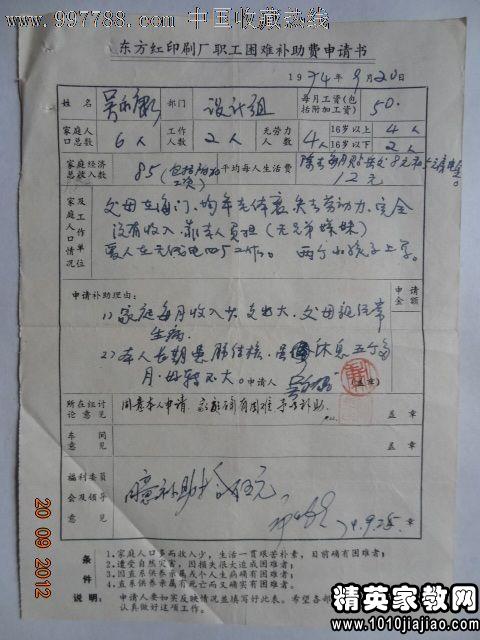 www.997788.com 中国收藏热线
东方红印刷厂职工困难补助费申请书
1974年9月20日
姓名 部门 设计组 每月工资(包括附加工资) 50.
家庭人口总数 6人 工作人数 2人 无劳力人数 4人 16岁以上 4人 16岁以下 2人
家庭经济总收入数 85(包括附加工资) 平均每人生活费 12元
家庭人口情况及工作单位
父母在海门、均年老体衰、失去劳动力、完全
没有收入、靠本人负担(无兄弟妹妹)
爱人在无线电四厂工作。 两个小孩子上学。
申请补助理由: 申请金额
1)家庭每月收入少支出大、父母组经常
生病.
2)本人长期患肺结核、 休息五个多
月.好转不大。 申请人 (盖章)
所在组讨论意见 同意本人申请.家庭确有困难 予以补助. 盖章
车间意见 盖章
福利委员会及领导意见 同意补助 伍元。 74.9.25 章)
条件
1、家庭人口多而收入少,生活一贯艰苦朴素,目前确有困难者;
2、遭受自然灾害,因损失很大造成困难者;
3、因直系供养亲属或个人生病确有困难者;
4、直系供养亲属有死亡而又确实有困难者。
说明: 申请人要如实反映情况并填写好此表。希望各部
认真做好这项工作。
20 09 2012
精英家教网
www.1010jiajiao.com